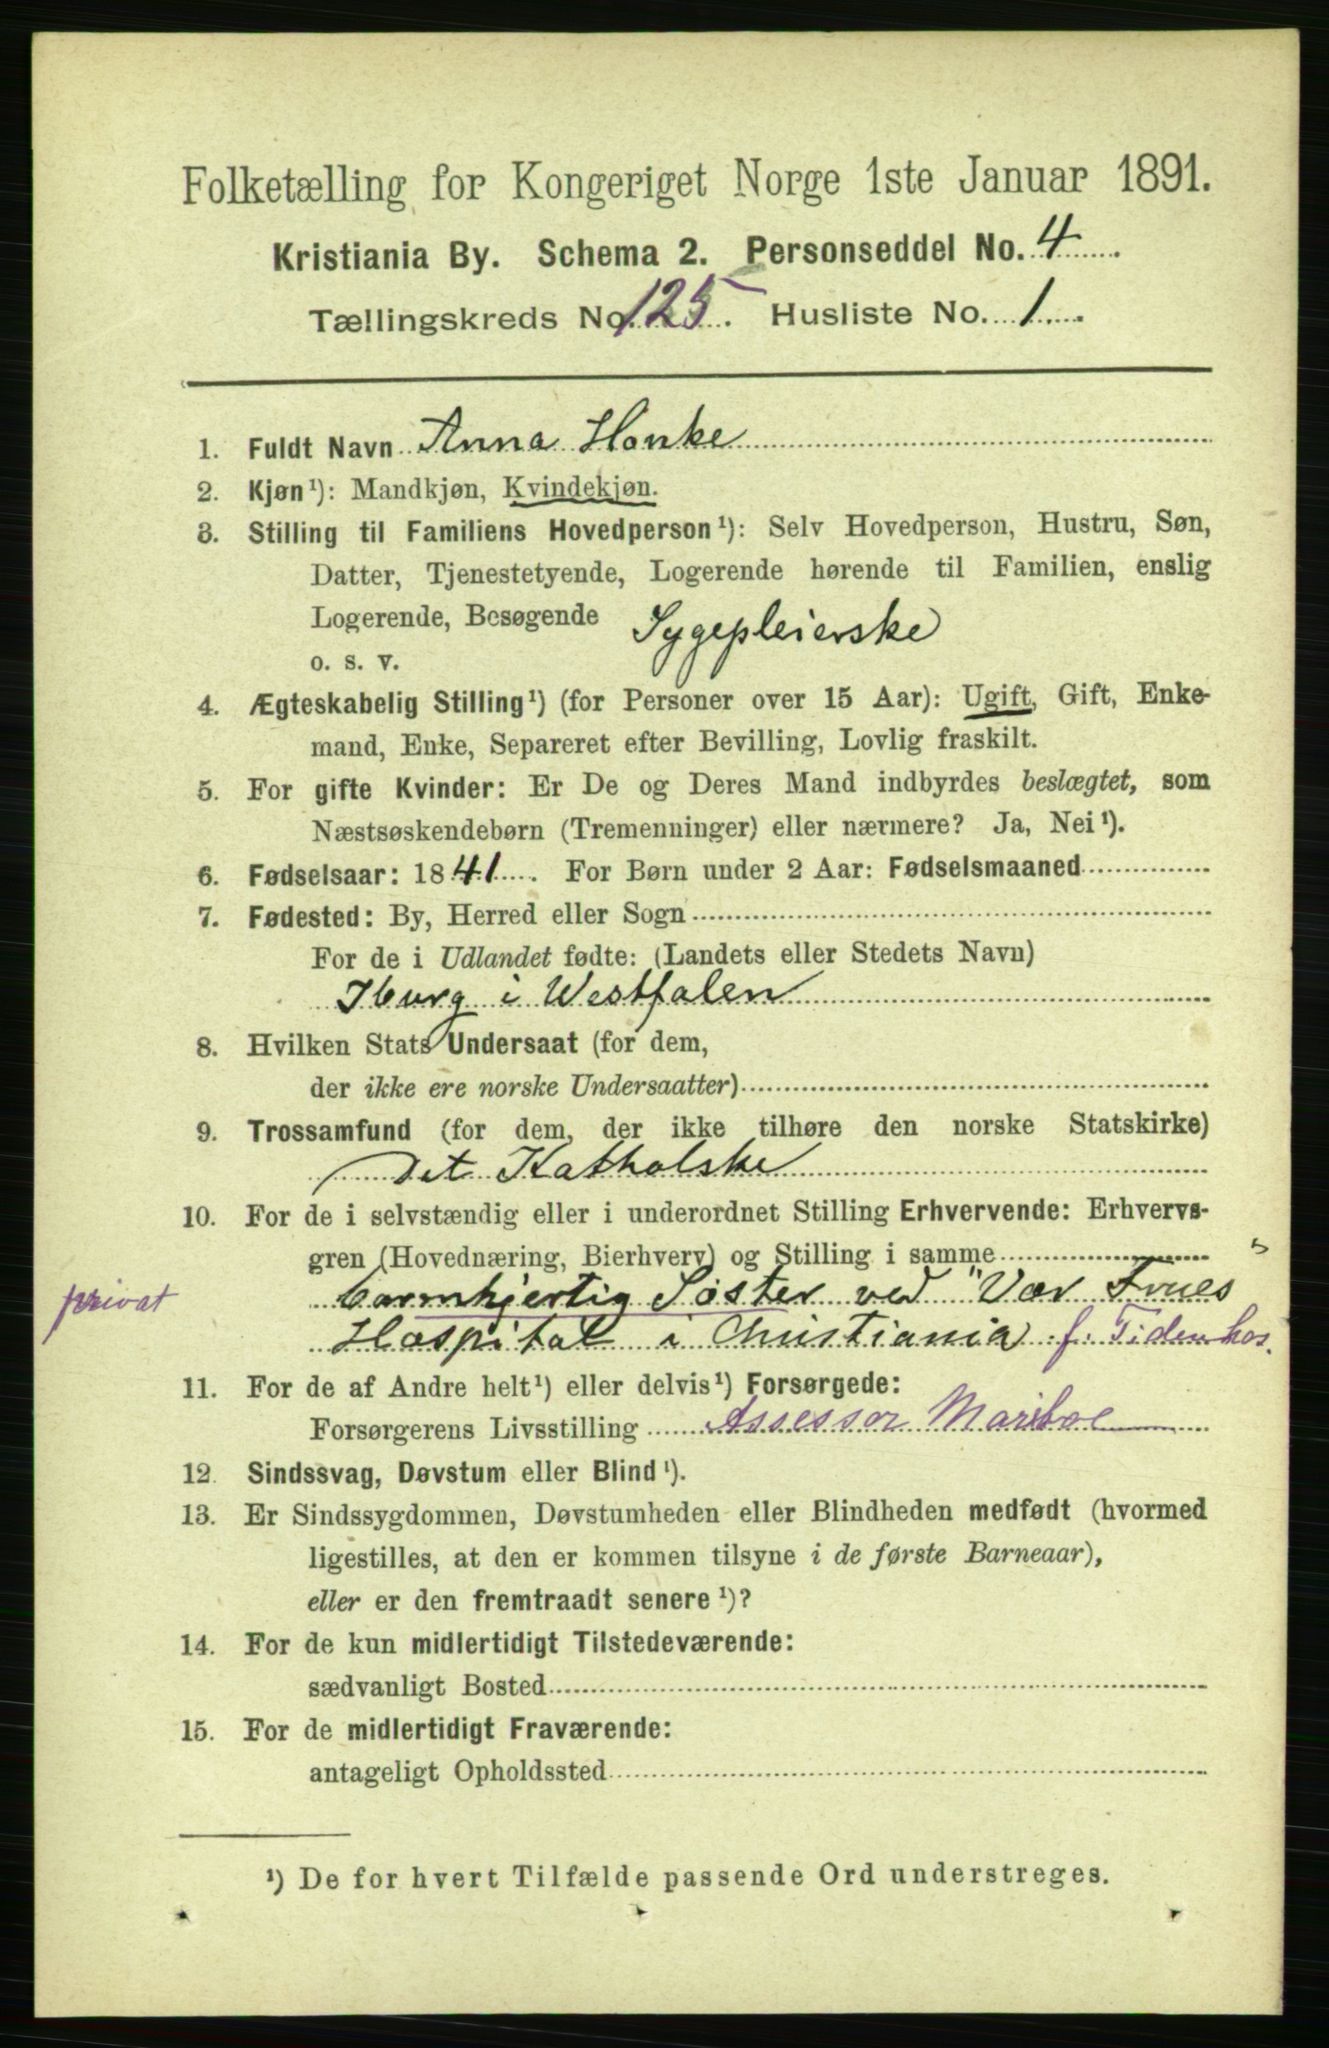 Folketælling for Kongeriget Norge 1ste Januar 1891.
Kristiania By. Schema 2. Personseddel No. 4
Tællingskreds No. 125. Husliste No. 1.
1. Fuldt Navn Anna Honke
2. Kjøn¹): Mandkjøn, Kvindekjøn.
3. Stilling til Familiens Hovedperson¹): Selv Hovedperson, Hustru, Søn,
Datter, Tjenestetyende, Logerende hørende til Familien, enslig
Logerende, Besøgende Sygepleierske
o. s. v.
4. Ægteskabelig Stilling¹) (for Personer over 15 Aar): Ugift, Gift, Enke-
mand, Enke, Separeret efter Bevilling, Lovlig fraskilt.
5. For gifte Kvinder: Er De og Deres Mand indbyrdes beslægtet, som
Næstsøskendebørn (Tremenninger) eller nærmere? Ja, Nei¹).
6. Fødselsaar: 1841. For Børn under 2 Aar: Fødselsmaaned
7. Fødested: By, Herred eller Sogn
For de i Udlandet fødte: (Landets eller Stedets Navn)
Iburg i Westfalen
8. Hvilken Stats Undersaat (for dem,
der ikke ere norske Undersaatter)
9. Trossamfund (for dem, der ikke tilhøre den norske Statskirke)
Det Katholske
10. For de i selvstændig eller i underordnet Stilling Erhvervende: Erhvervs-
gren (Hovednæring, Bierhverv) og Stilling i samme
privat barmhjertig Søster ved "Vor Frues"
Hospital i Christiania f. Tiden hos.
11. For de af Andre helt¹) eller delvis¹) Forsørgede:
Forsørgerens Livsstilling Assessor Mariboe
12. Sindssvag, Døvstum eller Blind¹).
13. Er Sindssygdommen, Døvstumheden eller Blindheden medfødt (hvormed
ligestilles, at den er kommen tilsyne i de første Barneaar),
eller er den fremtraadt senere¹)?
14. For de kun midlertidigt Tilstedeværende:
sædvanligt Bosted
15. For de midlertidigt Fraværende:
antageligt Opholdssted
¹) De for hvert Tilfælde passende Ord understreges.